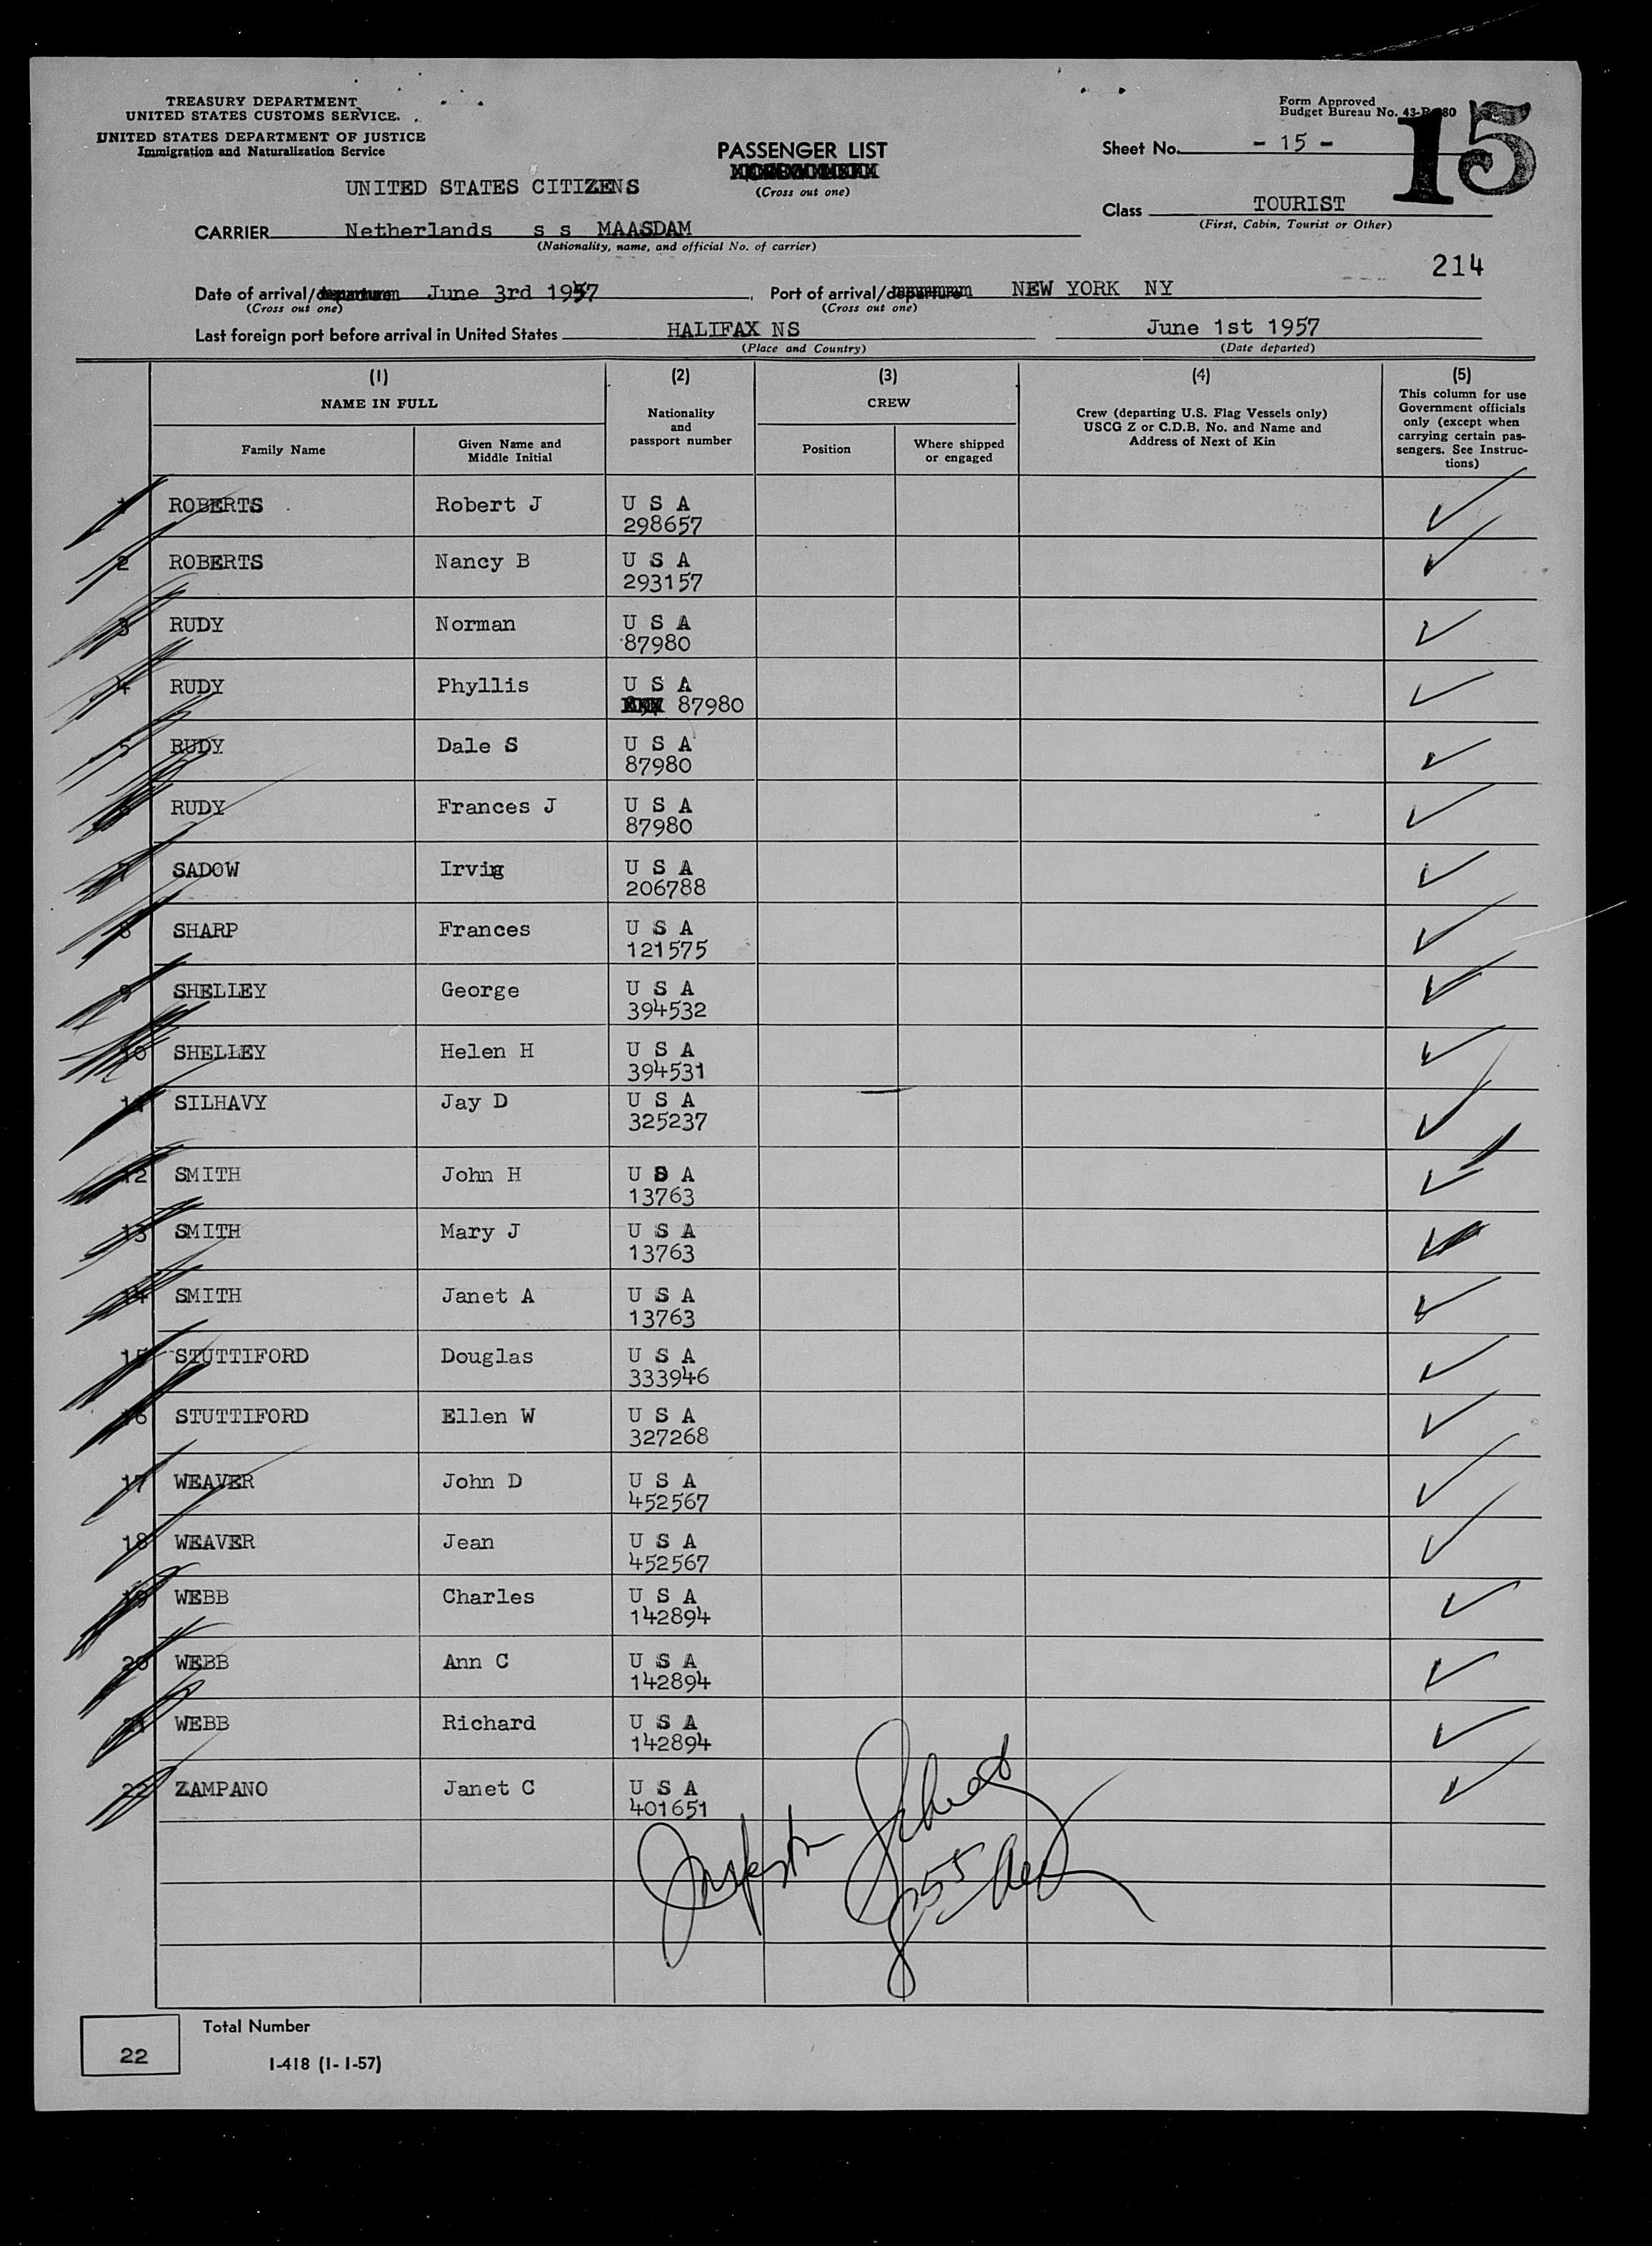 TREASURY DEPARTMENT
UNITED STATES CUSTOMS SERVICE.
UNITED STATES DEPARTMENT OF JUSTICE
Immigration and Naturalization Service
Form Approved
Budget Bureau No. 43-R
80
15
PASSENGER LIST
(Cross out one)
Sheet No. - 15 -
UNITED STATES CITIZENS
Class TOURIST
(First, Cabin, Tourist or Other)
CARRIER Netherlands s s MAASDAM
(Nationality, name, and official No. of carrier)
214
Date of arrival/departure June 3rd 1957, Port of arrival/departure NEW YORK NY
(Cross out one) (Cross out one)
Last foreign port before arrival in United States HALIFAX NS June 1st 1957
(Place and Country) (Date departed)
(1) (2) (3) (4) (5)
NAME IN FULL
Family Name
Given Name and
Middle Initial
Nationality
and
passport number
CREW
Position
Where shipped
or engaged
Crew (departing U.S. Flag Vessels only)
USCG Z or C.D.B. No. and Name and
Address of Next of Kin
This column for use
Government officials
only (except when
carrying certain pas-
sengers. See Instruc-
tions)
1 ROBERTS Robert J U S A
298657
2 ROBERTS Nancy B U S A
293157
3 RUDY Norman U S A
87980
4 RUDY Phyllis U S A
87980
5 RUDY Dale S U S A
87980
6 RUDY Frances J U S A
87980
7 SADOW Irvig U S A
206788
8 SHARP Frances U S A
121575
9 SHELLEY George U S A
394532
10 SHELLEY Helen H U S A
394531
11 SILHAVY Jay D U S A
325237
12 SMITH John H U S A
13763
13 SMITH Mary J U S A
13763
14 SMITH Janet A U S A
13763
15 STUTTIFORD Douglas U S A
333946
16 STUTTIFORD Ellen W U S A
327268
17 WEAVER John D U S A
452567
18 WEAVER Jean U S A
452567
19 WEBB Charles U S A
142894
20 WEBB Ann C U S A
142894
21 WEBB Richard U S A
142894
22 ZAMPANO Janet C U S A
401651
22
Total Number
I-418 (1-1-57)